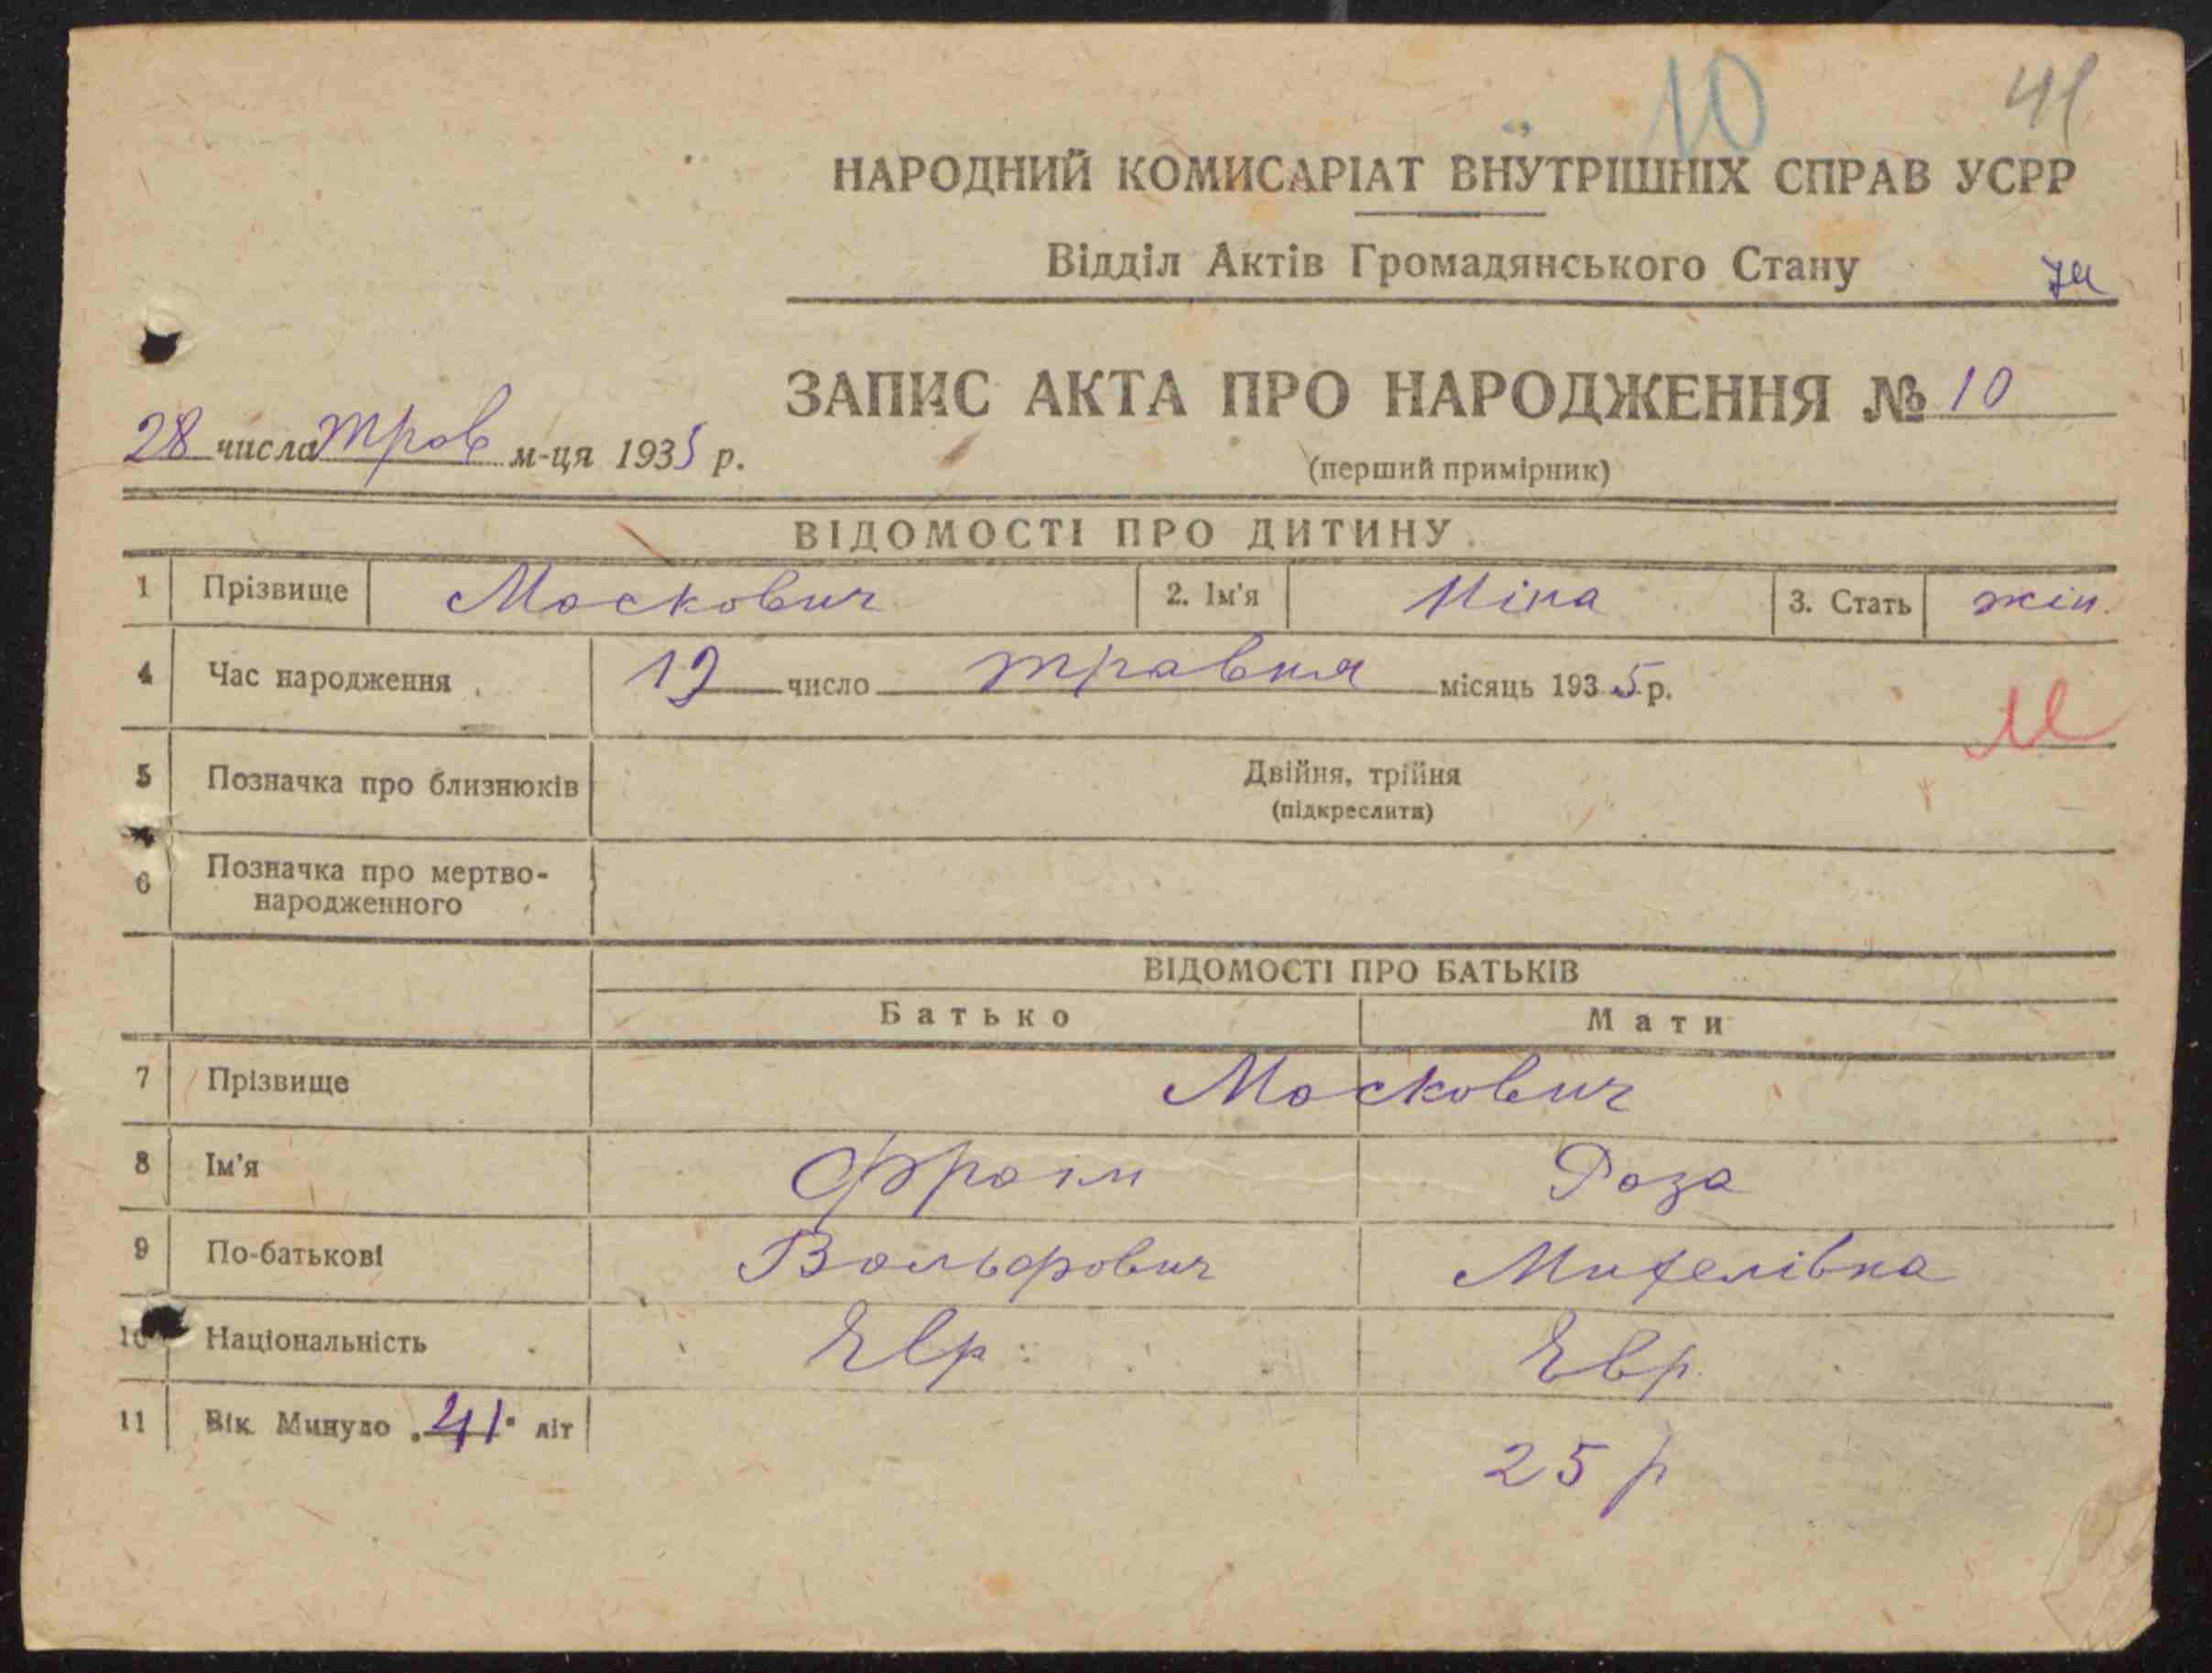 10 41
НАРОДНИЙ КОМИСАРІАТ ВНУТРІШНІХ СПРАВ УСРР
Відділ Актів Громадянського Стану
ЗАПИС АКТА ПРО НАРОДЖЕННЯ № 10
28 числа трав м-ця 1935 р.
(перший примірник)
ВІДОМОСТІ ПРО ДИТИНУ
1 Прізвище Москович 2. Ім'я Міна 3. Стать жін.
4 Час народження 19 число травня місяць 1935 р.
5 Позначка про близнюків Двійня, трійня
(підкреслити)
6 Позначка про мертво-
народженного
ВІДОМОСТІ ПРО БАТЬКІВ
Батько Мати
7 Прізвище Москович
8 Ім'я Фроїм Роза
9 По-батькові Вольфович Михелівна
10 Національність Евр. Евр.
11 Вік. Минуло "41" літ
25 р